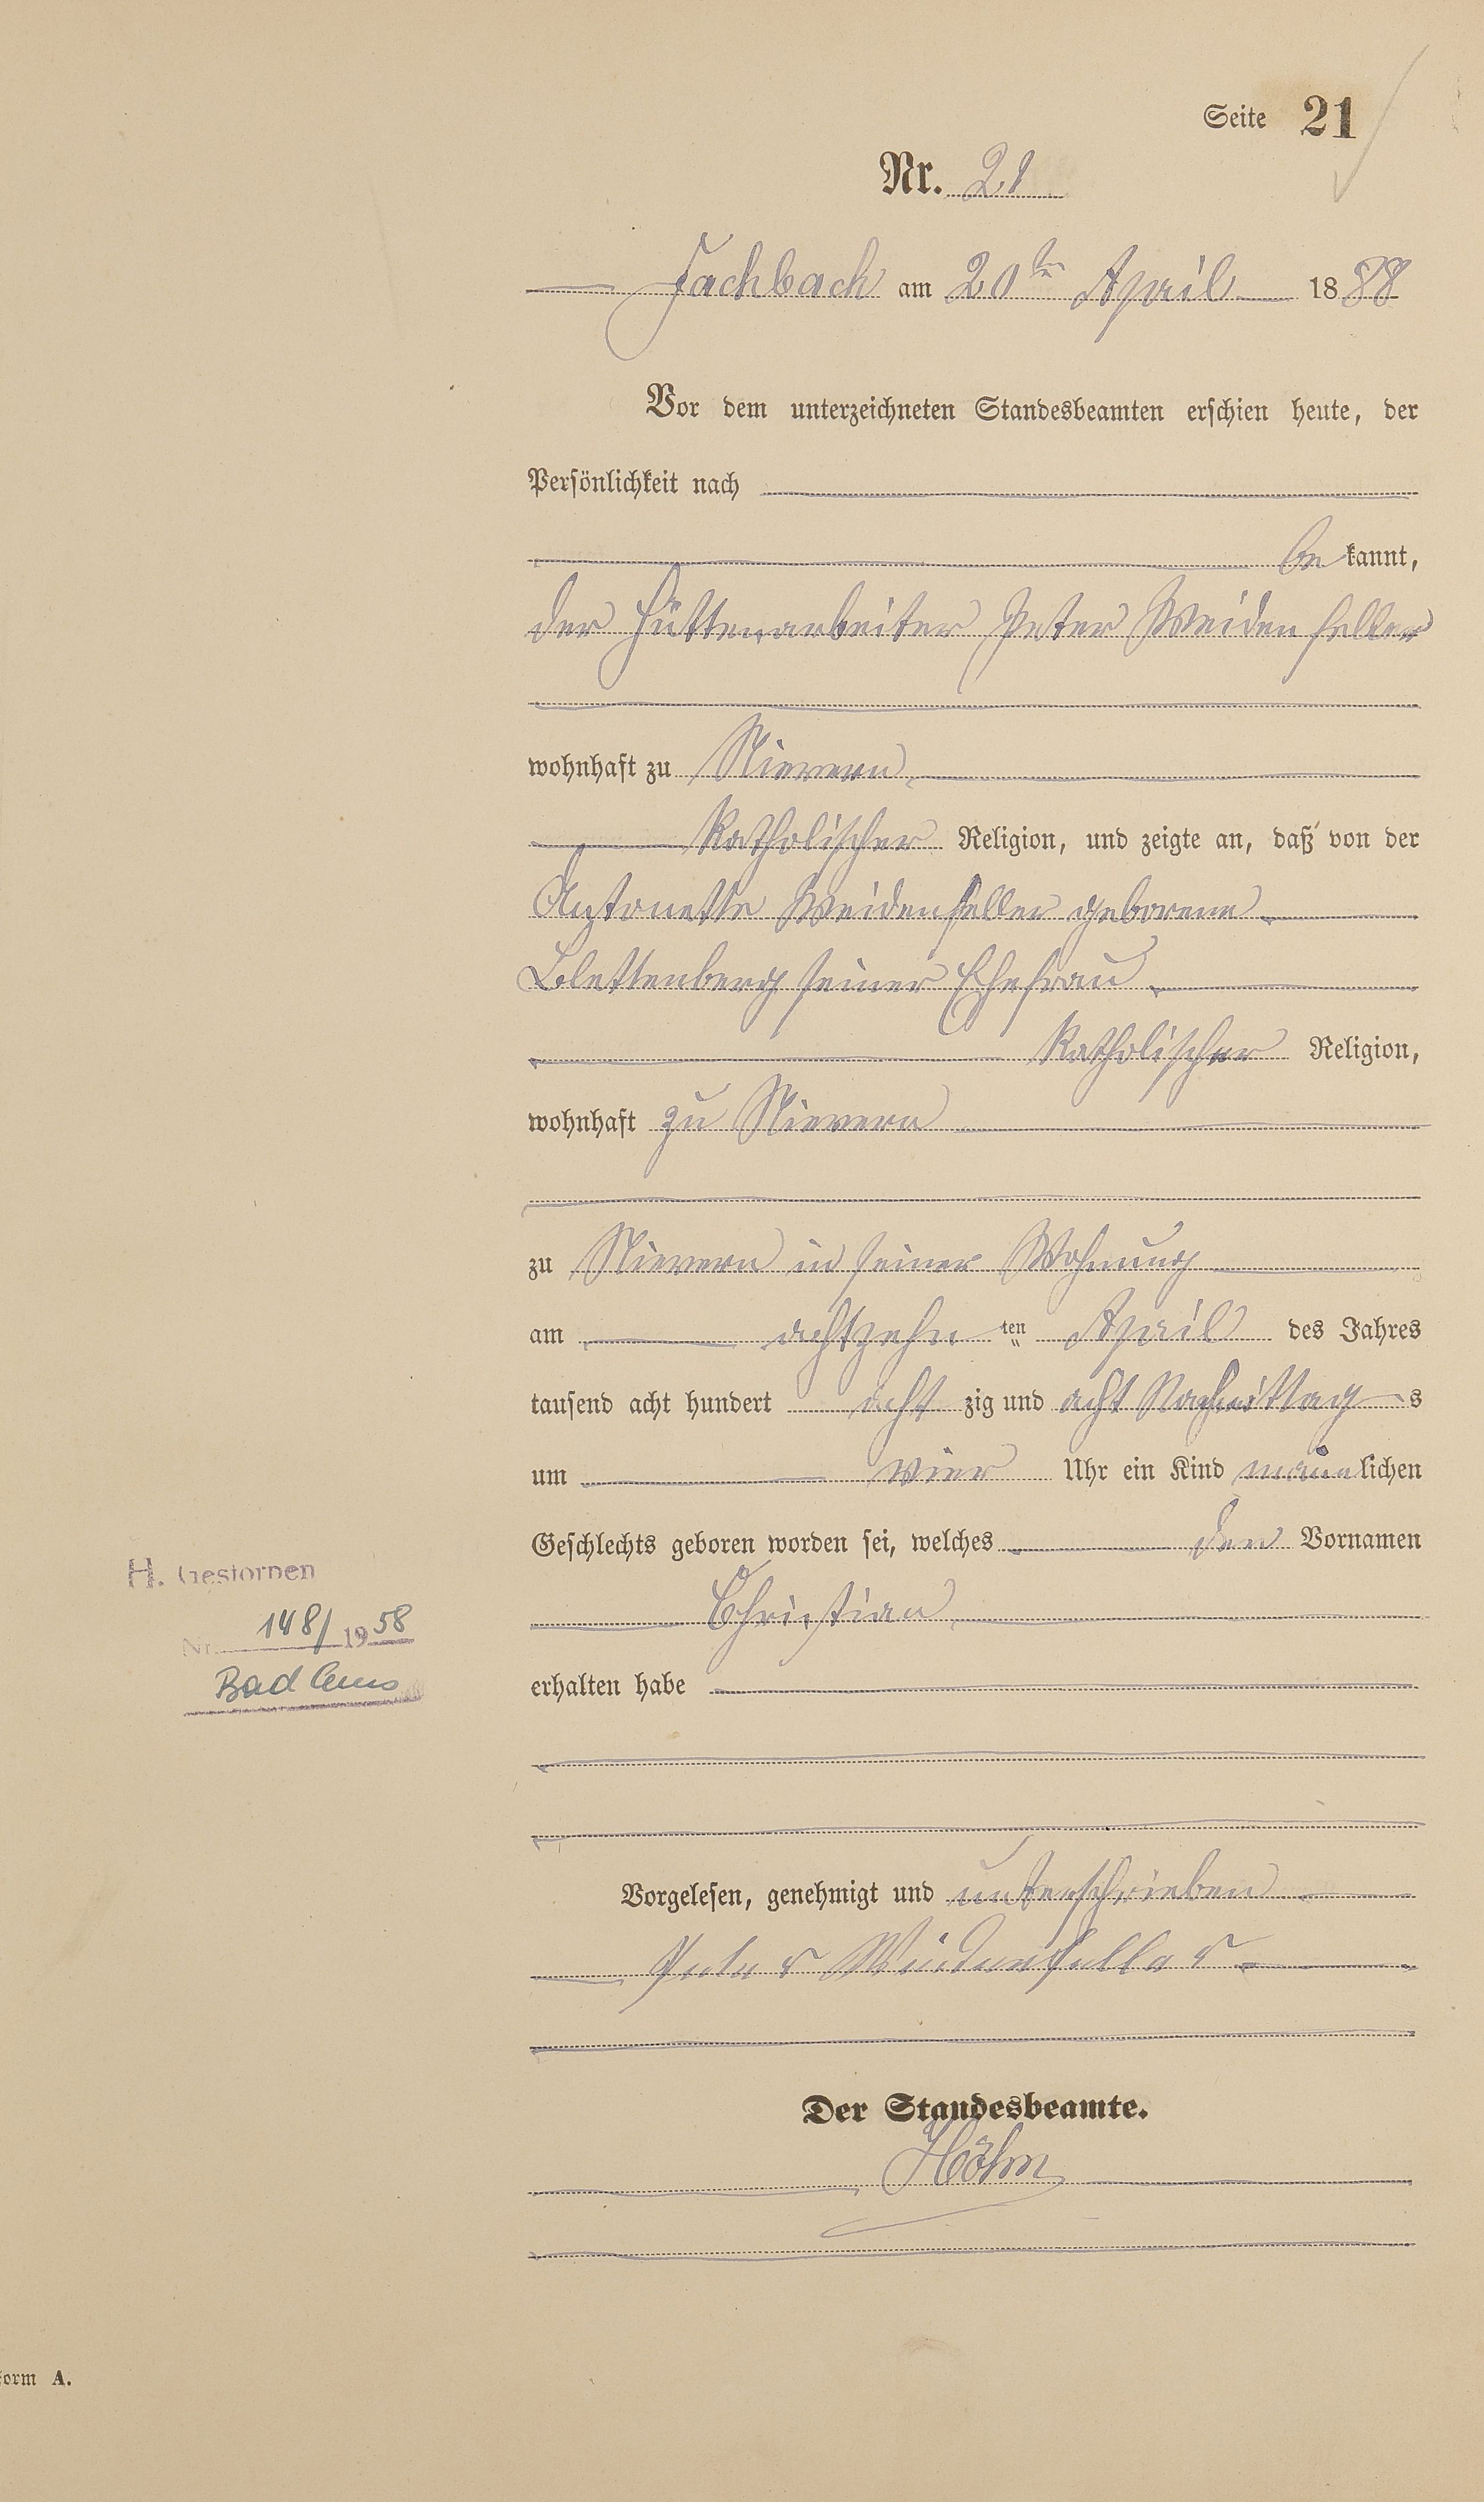 Seite 21
Nr. 21
Fachbach am 20ten April 1888
Vor dem unterzeichneten Standesbeamten erschien heute, der
Persönlichkeit nach
bekannt,
der Hüttenarbeiter Peter Weidenfeller
wohnhaft zu Nievern
katholischer Religion, und zeigte an, daß von der
Antonette Weidenfeller geborene
Blettenberg seiner Ehefrau
katholischer Religion,
wohnhaft zu Nievern
zu Nievern in seiner Wohnung
am achtzehn ten April des Jahres
tausend acht hundert acht zig und acht Nachmittags
um vier Uhr ein Kind männlichen
Geschlechts geboren worden sei, welches den Vornamen
H. Gestorben
Christian
Nr. 148/1958
Bad Ems
erhalten habe
Vorgelesen, genehmigt und unterschrieben
Peter Weidenfeller
Der Standesbeamte.
Höhn
form A.